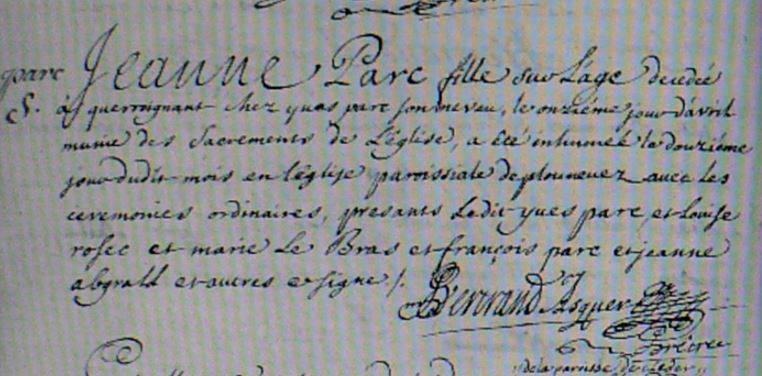 parc Jeanne Parc fille sur L'age decedée
S. à querroignant chez yves parc son neveu, le onziéme jour d'avril
munie des Sacrements de L'église, a été inhumée le douziéme
jour dudit mois en l'église paroissiale de plounevez avec les
ceremonies ordinaires, presants Ledit yves parc, et Louise
rosec et marie Le Bras et françois parc et jeanne
abgrall et autres et signe /.
Bertrand Asquer
prêtre
de la paroisse de